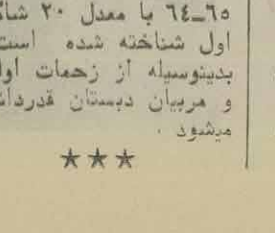 ٦٤ـ٦٥ با معدل ٢٠ شا
اول شناخته شده است
بدینوسیله از زحمات اوا
و مربیان دبستان قدردان
میشود .
★★★